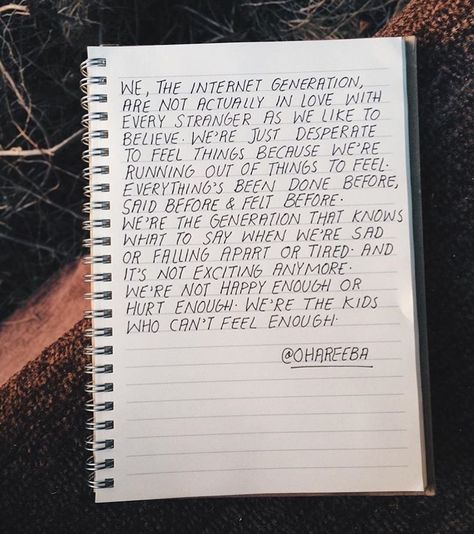 WE, THE INTERNET GENERATION,
ARE NOT ACTUALLY IN LOVE WITH
EVERY STRANGER AS WE LIKE TO
BELIEVE. WE'RE JUST DESPERATE
TO FEEL THINGS BECAUSE WE'RE
RUNNING OUT OF THINGS TO FEEL.
EVERYTHING'S BEEN DONE BEFORE,
SAID BEFORE & FELT BEFORE.
WE'RE THE GENERATION THAT KNOWS
WHAT TO SAY WHEN WE'RE SAD
OR FALLING APART OR TIRED. AND
IT'S NOT EXCITING ANYMORE.
WE'RE NOT HAPPY ENOUGH OR
HURT ENOUGH. WE'RE THE KIDS
WHO CAN'T FEEL ENOUGH.
@OHAREEBA